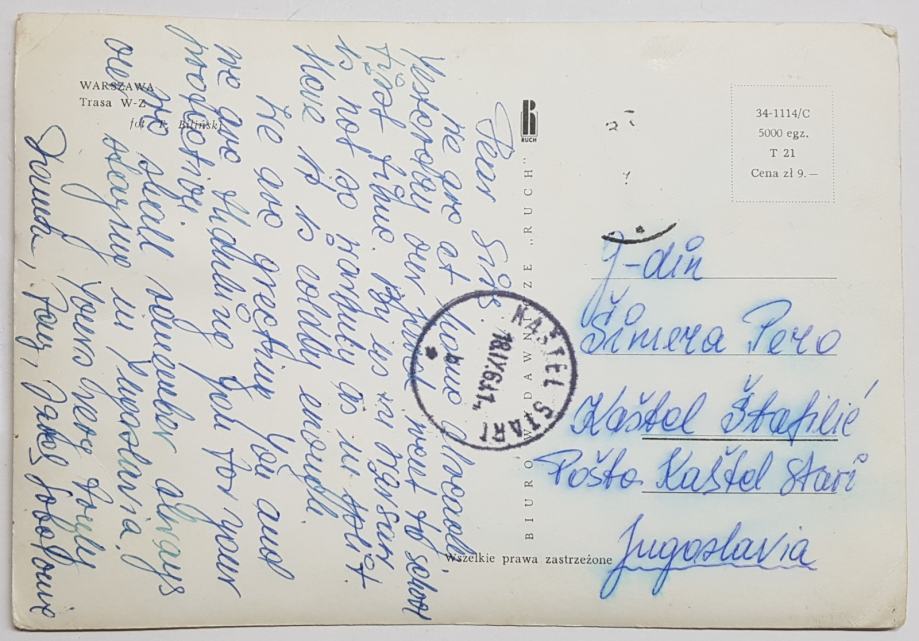 WARSZAWA
Trasa W-Z
fot. K. Biliński
Dear Sirs
We are at home already
Yesterday our went to school
first time. By us in Warsaw
is not so warmly as in Split
Here it is coldy enough.
We are greeting You and
we are thanking You for your
We shall remember always
our staying in Yugoslavia!
Yours very truly
RUCH
BIURO WYDAWNICZE „RUCH"
34-1114/C
5000 egz.
T 21
Cena zł 9.—
KAŠTEL STARI
J-din
Šimera Pero
Kaštel Štafilić
Pošta Kaštel Stari
Jugoslavia
Wszelkie prawa zastrzeżone